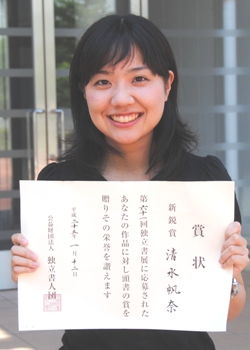 賞状
新鋭賞 清水帆奈
第六十一回独立書展に応募された
あなたの作品に対し頭書の賞を
贈りその栄誉を讃えます
平成二十五年一月十二日
公益財団法人 独立書人団